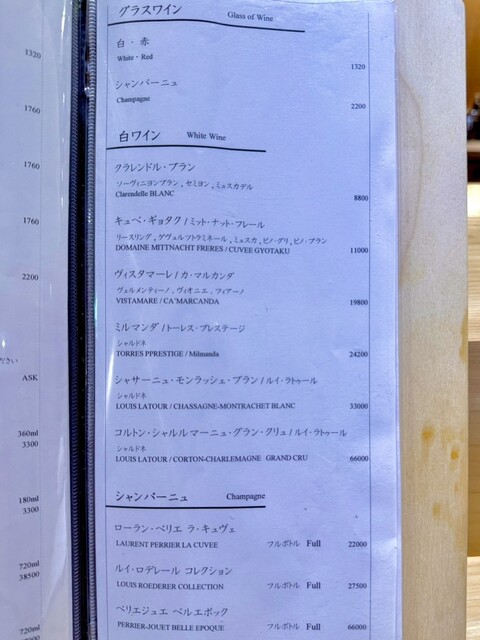 1320
1760
1760
1760
2200
ださい
ASK
360ml
3300
180ml
3300
720ml
38500
720ml
グラスワイン Glass of Wine
白・赤
White・Red 1320
シャンパーニュ
Champagne 2200
白ワイン White Wine
クラレンドル・ブラン
ソーヴィニヨンブラン , セミヨン , ミュスカデル
Clarendelle BLANC 8800
キュベ・ギョタク / ミット・ナット・フレール
リースリング , ゲヴェルツトラミネール , ミュスカ , ピノ・グリ , ピノ・ブラン
DOMAINE MITTNACHT FRERES / CUVEE GYOTAKU 11000
ヴィスタマーレ / カ・マルカンダ
ヴェルメンティーノ , ヴィオニエ , フィアーノ
VISTAMARE / CA'MARCANDA 19800
ミルマンダ / トーレス・プレステージ
シャルドネ
TORRES PPRESTIGE / Milmanda 24200
シャサーニュ・モンラッシェ・ブラン / ルイ・ラトゥール
シャルドネ
LOUIS LATOUR / CHASSAGNE-MONTRACHET BLANC 33000
コルトン・シャルルマーニュ・グラン・クリュ / ルイ・ラトゥール
シャルドネ
LOUIS LATOUR / CORTON-CHARLEMAGNE GRAND CRU 66000
シャンパーニュ Champagne
ローラン・ペリエ ラ・キュヴェ
LAURENT PERRIER LA CUVEE フルボトル Full 22000
ルイ・ロデレール コレクション
LOUIS ROEDERER COLLECTION フルボトル Full 27500
ペリエジュエ ベルエポック
PERRIER-JOUET BELLE EPOQUE フルボトル Full 66000